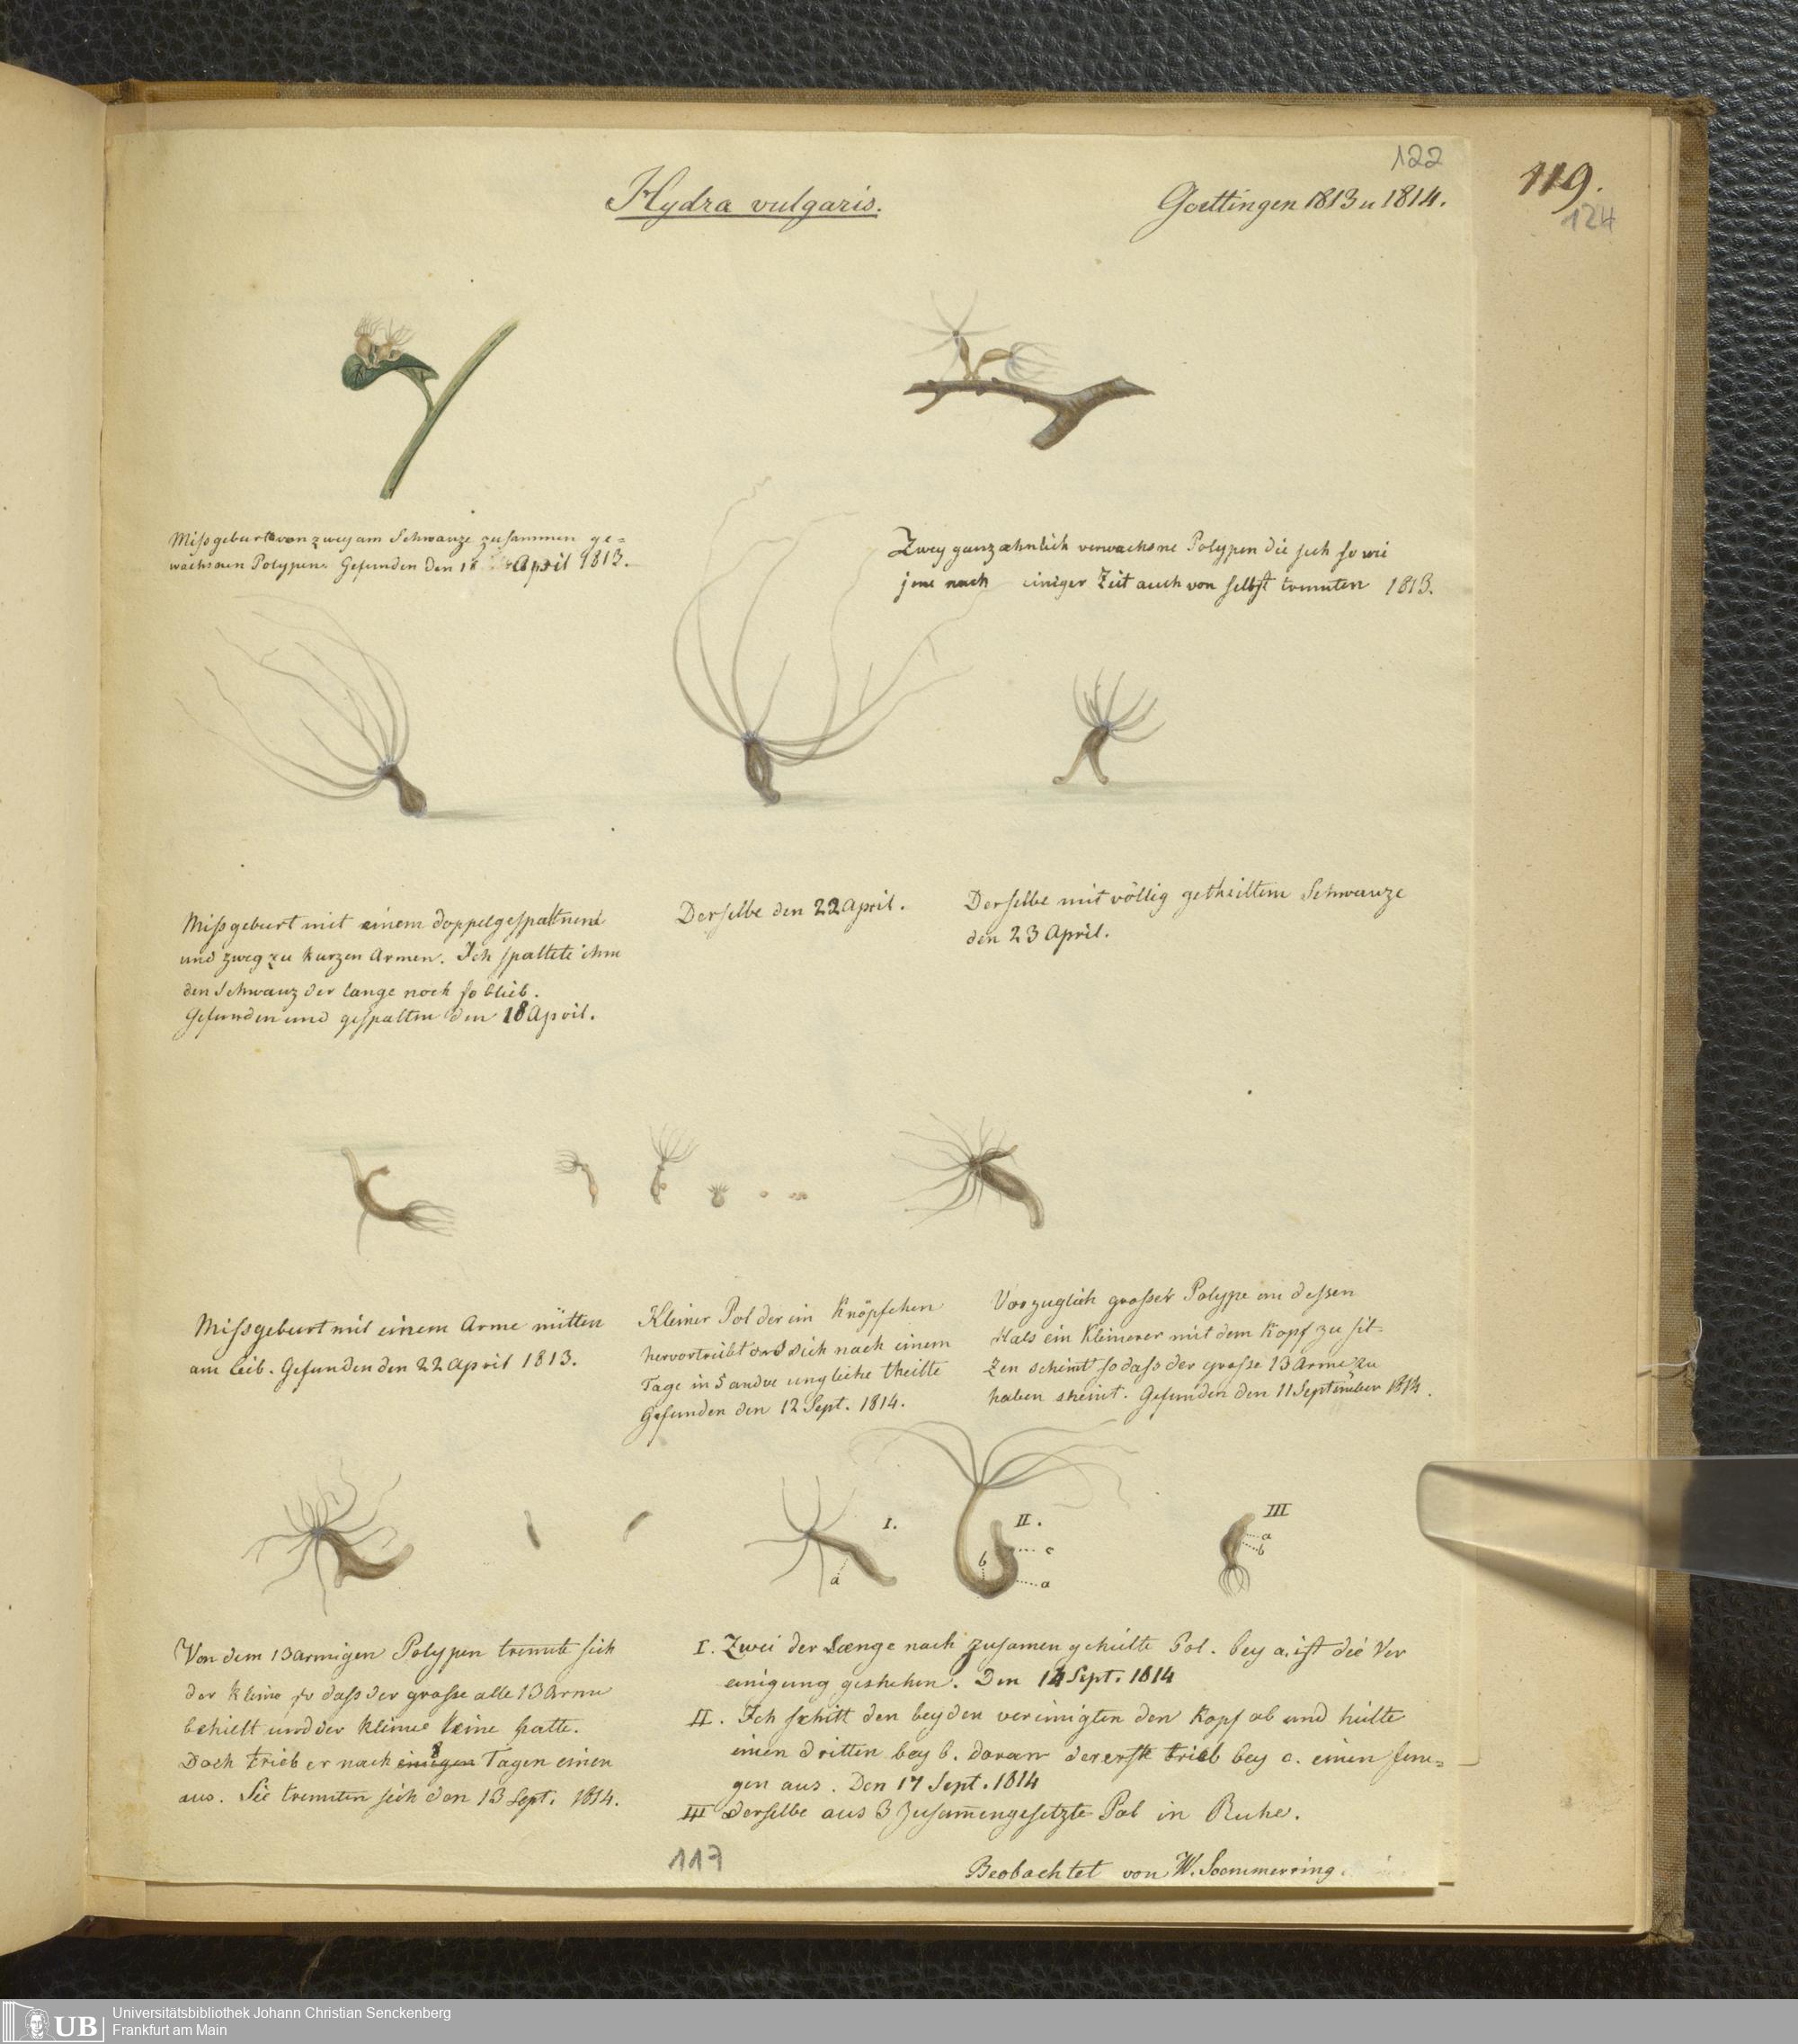 122
119.
124
Hydra vulgaris.
Goettingen 1813 u 1814.
Missgeburt von zwey am Schwanze zusammen ge=
wachsnen Polypen. Gefunden den 18 April 1813.
Zwey ganz æhnlich verwachsne Polypen die sich so wie
jene nach einiger Zeit auch von selbst trennten 1813.
Missgeburt mit einem doppelgespaltnem
und zwey zu kurzen Armen. Ich spaltete ihm
den Schwanz der lange noch so blieb.
Gefunden und gespalten den 18 April.
Derselbe den 22 April.
Derselbe mit völlig getheiltem Schwanze
den 23 April.
Missgeburt mit einem Arme mitten
am leib. Gefunden den 22 April 1813.
Kleiner Pol der ein Knöpfchen
hervortreibt und sich nach einem
Tage in 5 andre ungliche theilte
Gefunden den 12 Sept. 1814.
Vorzuglich grosser Polype an dessen
Hals ein Kleinerer mit dem Kopf zu sit=
zen scheint so dass der grosse 13 Arme zu
haben sheint. Gefunden den 11 September 1814.
I.
a
II.
c
b
a
III
a
b
Von dem 13 armigen Polypen trennte sich
der kleine so dass der grosse alle 13 Arme
behielt und der kleine keine hatte.
Doch trieb er nach einigen 8 Tagen einen
aus. Sie trennten sich den 13 Sept. 1814.
I. Zwei der Længe nach zusamen geheilte Pol. bey a. ist die Ver
einigung geshehen. Den 14 Sept. 1814
II. Ich schitt den beyden vereinigten den Kopf ab und heilte
einen dritten bey b. daran der erste trieb bey c. einen jun=
gen aus. Den 17 Sept. 1814
III derselbe aus 3 Zusam̄engesetzte Pol in Ruhe.
117
Beobachtet von W. Soemmerring.
UB
Universitätsbibliothek Johann Christian Senckenberg
Frankfurt am Main